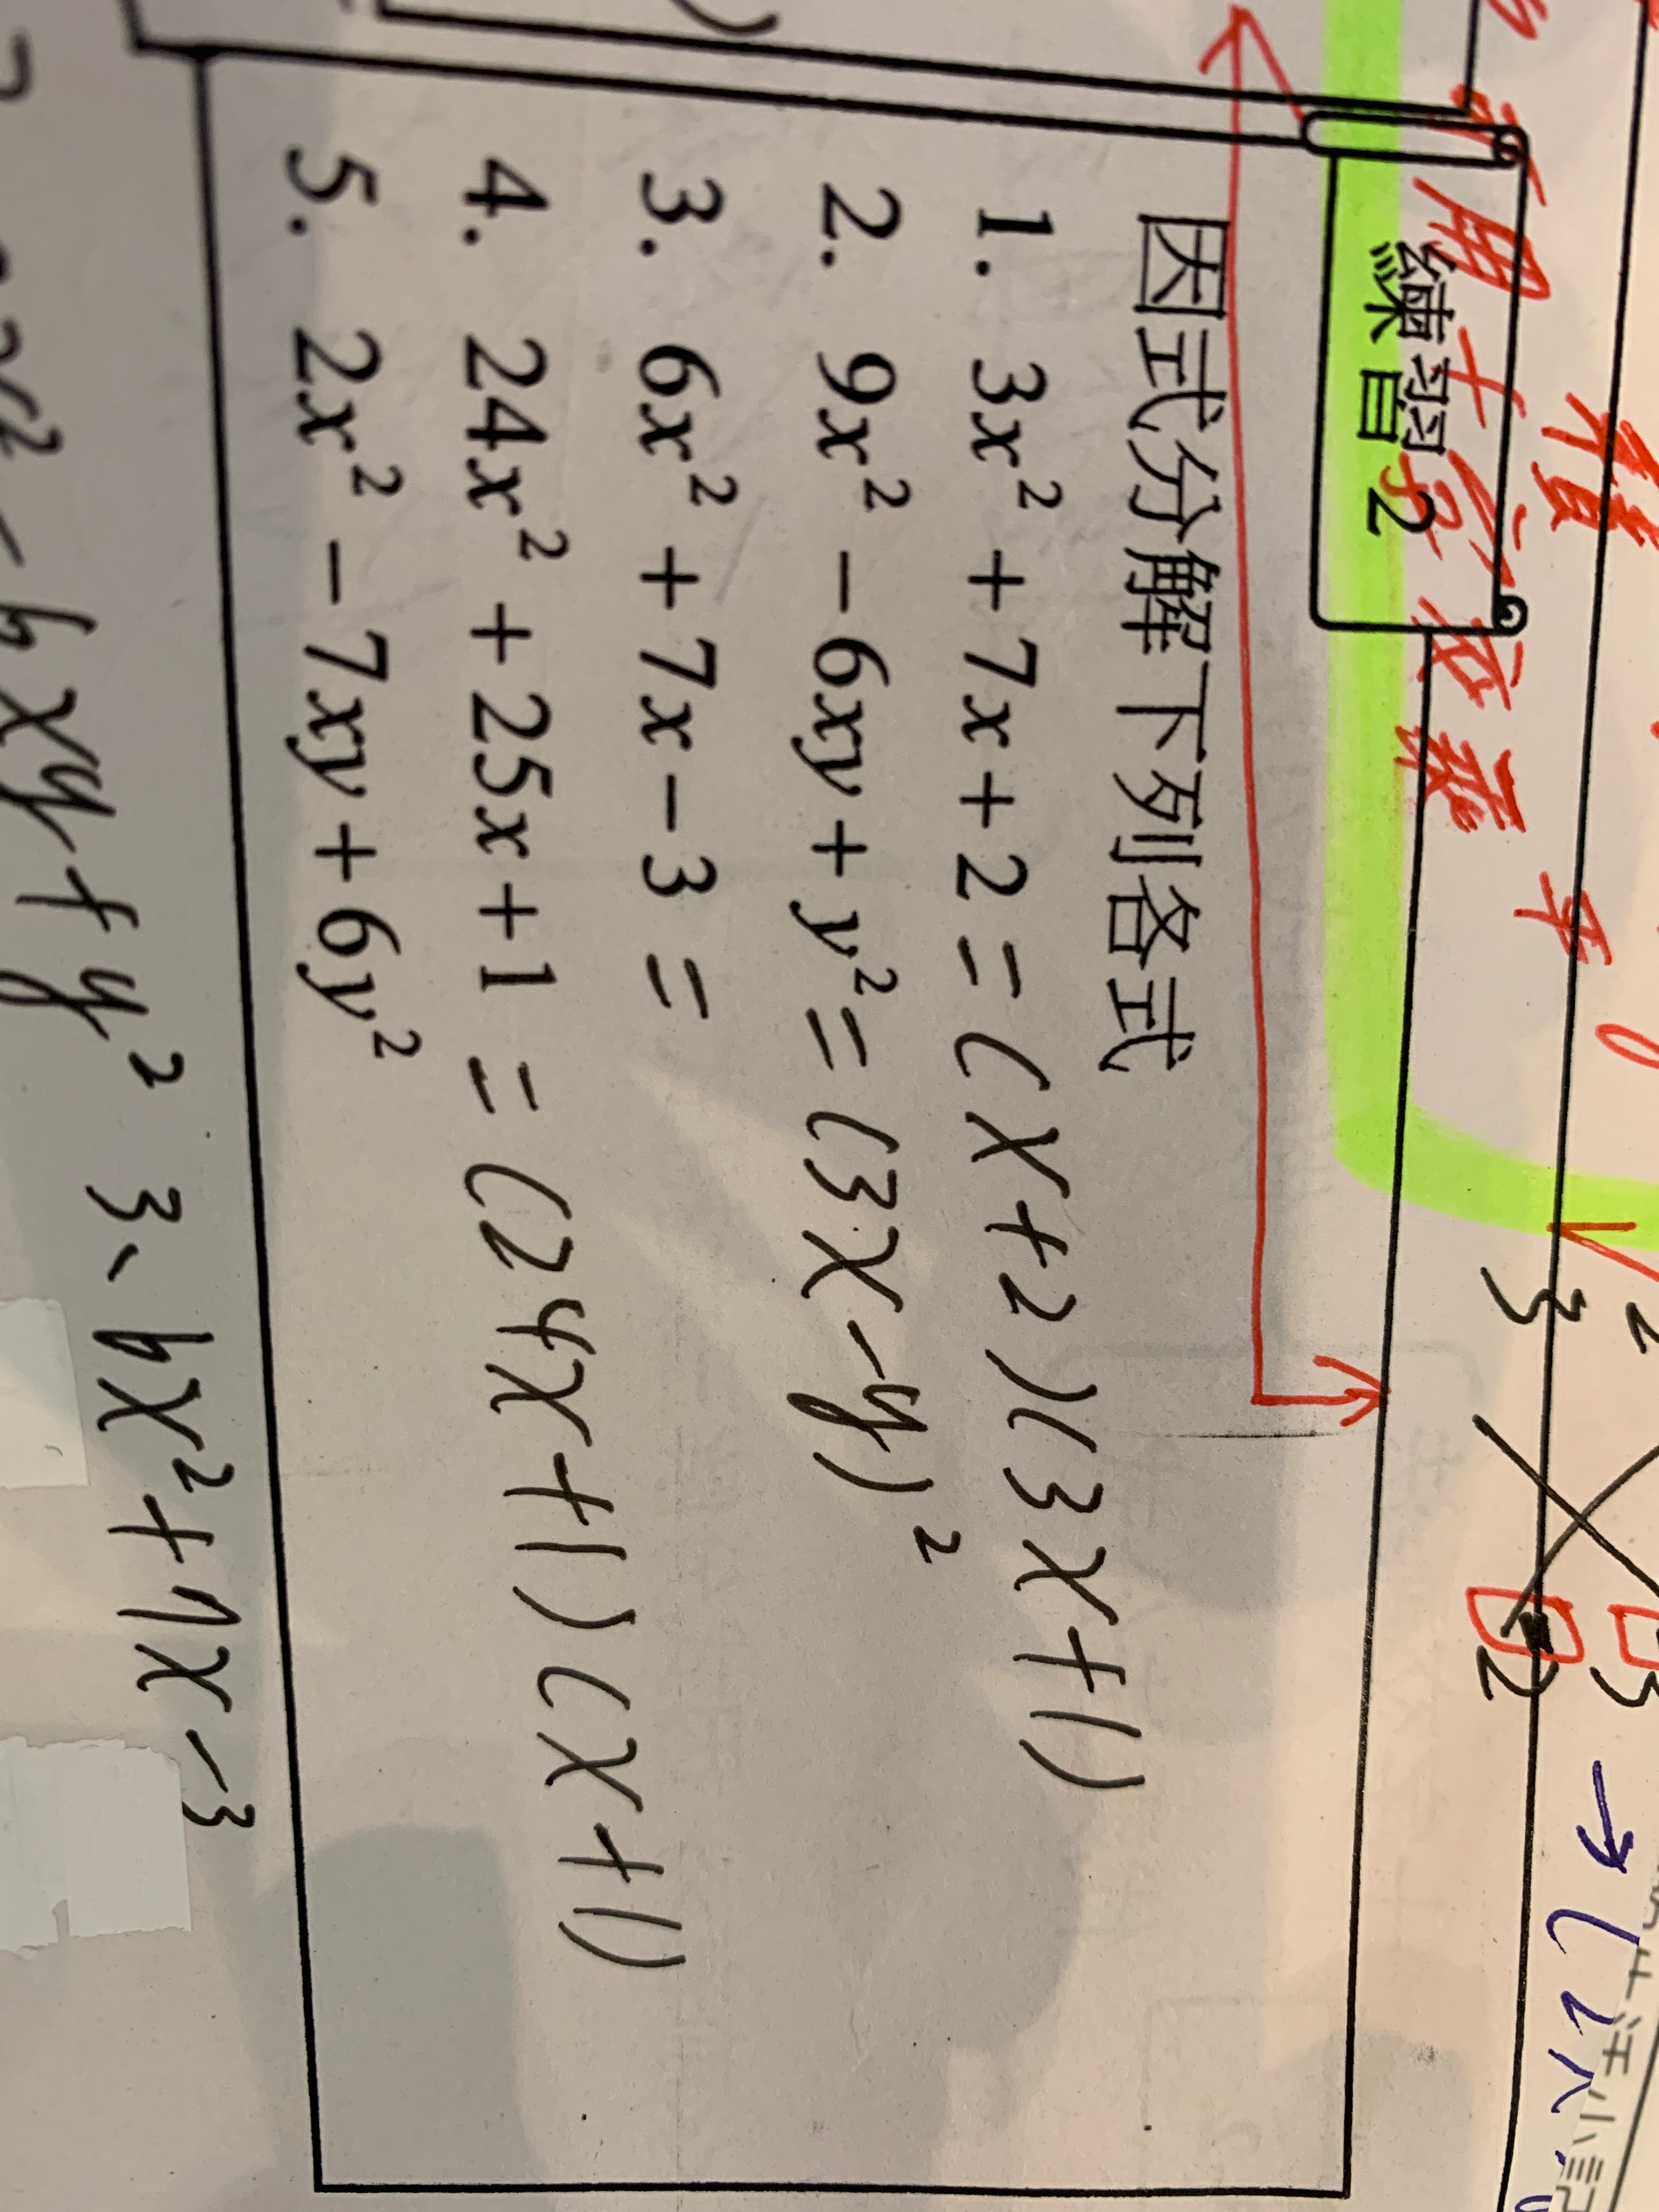 用十字交乘
練習2
因式分解下列各式
1. 3x² + 7x + 2 = (x+2)(3x+1)
2. 9x² − 6xy + y² = (3x−y)²
3. 6x² + 7x − 3 =
4. 24x² + 25x + 1 = (24x+1)(x+1)
5. 2x² − 7xy + 6y²
6xy + y² 3、6x²+7x−3